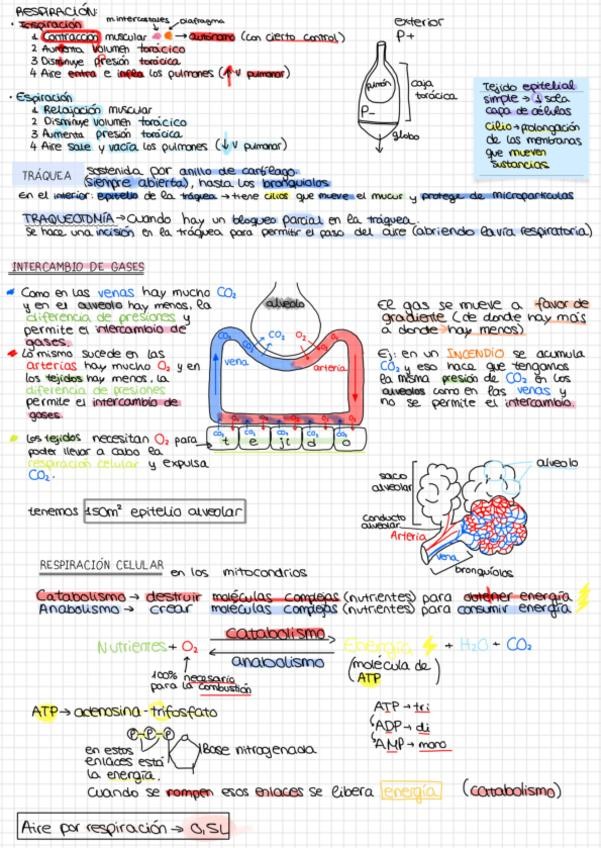 RESPIRACIÓN:
· Inspiración
m.intercostales diafragma
1 Contracción muscular → autónomo (con cierto control)
2 Aumenta volumen torácico
3 Disminuye presión torácica
4 Aire entra e infla los pulmones (↑ v pulmonar)
· Espiración
1 Relajación muscular
2 Disminuye volumen torácico
3 Aumenta presión torácica
4 Aire sale y vacía los pulmones (↓ v pulmonar)
exterior
P+
pulmón
P-
caja
torácica
globo
Tejido epitelial
simple → 1 sola
capa de células
cilio → prolongación
de las membranas
que mueven
sustancias
TRÁQUEA
sostenida por anillo de cartílago
(siempre abierta), hasta los bronquiolos
en el interior: epitelio de la tráquea → tiene cilios que mueve el mucur y protege de microparticulas
TRAQUEOTOMÍA → Cuando hay un bloqueo parcial en la tráquea.
Se hace una incisión en la tráquea para permitir el paso del aire (abriendo la vía respiratoria)
INTERCAMBIO DE GASES
Como en las venas hay mucho CO₂
y en el alveolo hay menos, la
diferencia de presiones y
permite el intercambio de
gases.
Lo mismo sucede en las
arterias hay mucho O₂ y en
los tejidos hay menos, la
diferencia de presiones
permite el intercambio de
gases.
los tejidos necesitan O₂ para
poder llevar a cabo la
respiración celular y expulsa
CO₂.
alveolo
CO₂ CO₂ CO₂ O₂ O₂
vena
arteria
CO₂ O₂ CO₂ O₂ CO₂ O₂ CO₂ O₂ CO₂ O₂
t e ji d o
El gas se mueve a favor de
gradiente (de donde hay más
a donde hay menos)
Ej: en un INCENDIO se acumula
CO₂ y eso hace que tengamos
la misma presión de CO₂ en los
alveolos como en las venas y
no se permite el intercambio.
tenemos 150m² epitelio alveolar
saco
alveolar
alveolo
conducto
alveolar
Arteria
vena
bronquiolos
RESPIRACIÓN CELULAR en los mitocondrios
Catabolismo → destruir moléculas complejas (nutrientes) para obtener energía
Anabolismo → crear moléculas complejas (nutrientes) para consumir energía
Nutrientes + O₂
catabolismo
anabolismo
Energía + H₂O + CO₂
(molécula de)
ATP
100% necesario
para la combustión
ATP → adenosina-trifosfato
P-P-P
en estos
enlaces está
la energía.
Base nitrogenada
ATP → tri
ADP → di
AMP → mono
Cuando se rompen esos enlaces se libera energía (catabolismo)
Aire por respiración → 0,5L